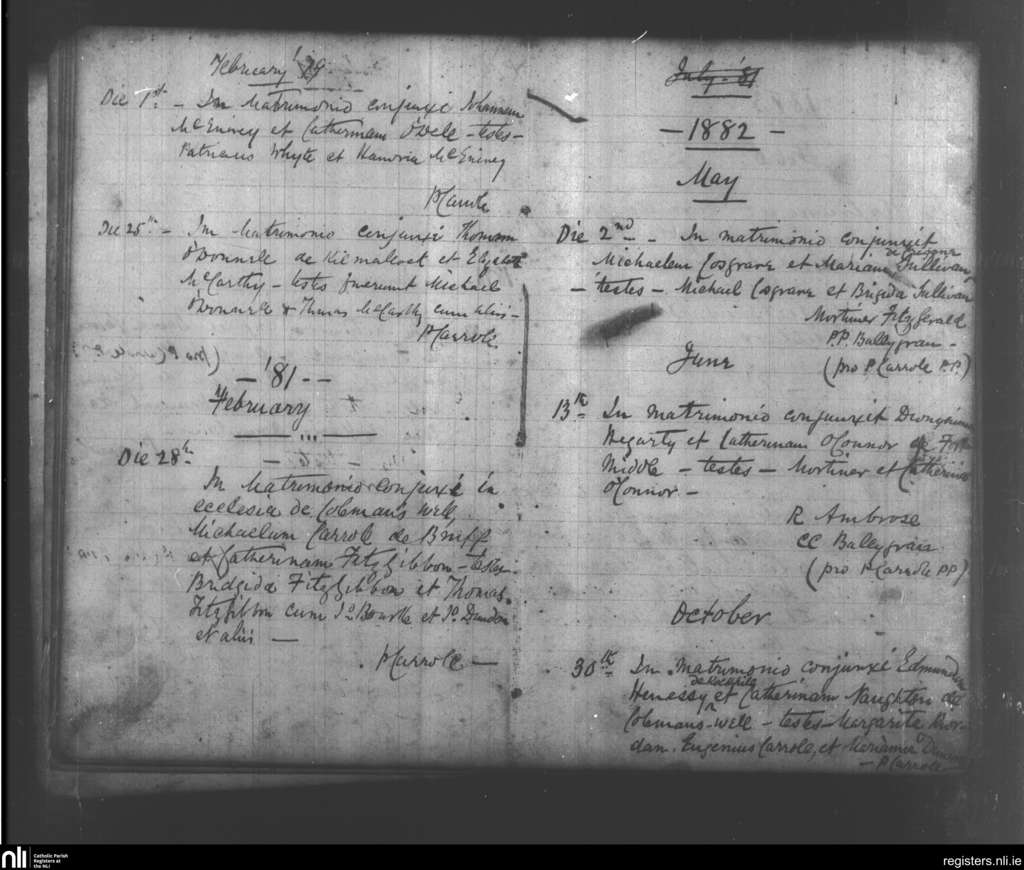 February '79
Die 1st. – In Matrimonio conjunxi Johannem
McEniney et Catherinam – testes –
Patricius Whyte et Hanoria McEniney
P Carrole
Die 25th – In Matrimonio conjunxi Thomam
O'Donnele de Kilmallock et
McCarthy – testes fuerunt Michael
O'Donnele & Thomas McCarthy cum aliis –
P Carrole
– '81 – –
February
Die 28th
In Matrimonio conjunxi in
ecclesia de Colmans Well,
Michaelum Carrole de Bruff
et Catherinam Fitzgibbon – testes –
Bridgida Fitzgibbon et Thomas
Fitzgibbon cum Jo Bourke et Jo Dundon
et aliis –
P Carrole –
July '81
– 1882 –
May
Die 2nd – In matrimonio conjunxit
Michaelem Cosgrave et Mariam Sullivan
– testes – Michael Cosgrave et Brigida Sullivan
Mortimer Fitzgerald
P.P. Ballygran –
(pro P Carrole P.P.)
June
13th In matrimonio conjunxit Dionysium
Hegarty et Catherinam O'Connor de
Middle – testes – Mortimer et Catherina
O'Connor –
R Ambrose
CC Ballygran
(pro P Carrole PP)
October
30th In matrimonio conjunxi Edmundum
Henessy et Catherinam Naughton de
Colemans-well – testes – Margarita
Eugenius Carrole, et
– P Carrole
nli
Catholic Parish
Registers at
the NLI
registers.nli.ie